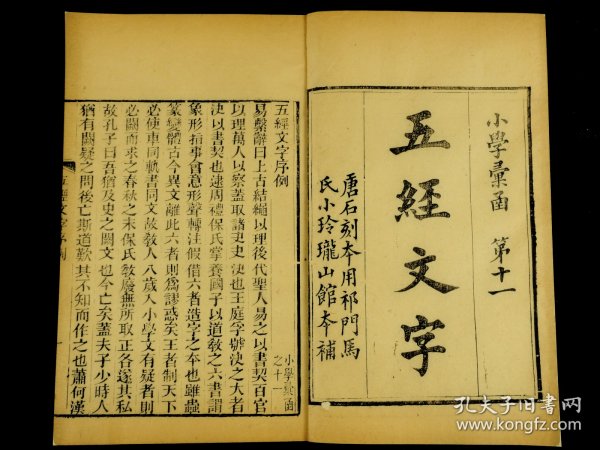 小學彙函 第十一
五經文字
唐石刻本用祁門馬
氏小玲瓏山館本補
五經文字序例
小學彙函
之十一
易繫辭曰上古結繩以理後代聖人易之以書契百官
以理萬人以察蓋取諸夬夬決也王庭孚號決之大者
決以書契也逮周禮保氏掌養國子以道敎之六書謂
象形指事會意形聲轉注假借六者造字之本也雖蟲
篆變體古今異文離此六者則爲謬惑矣王者制天下
必使車同軌書同文故敎人八歲入小學文有疑者則
必闕而求之春秋之末保氏敎廢無所取正各遂其私
故孔子曰吾猶及史之闕文也今亡矣蓋夫子少時人
猶有闕疑之問後亡斯道歎其不知而作之也蕭何漢
五經文字序例
孔夫子旧书网
www.kongfz.com